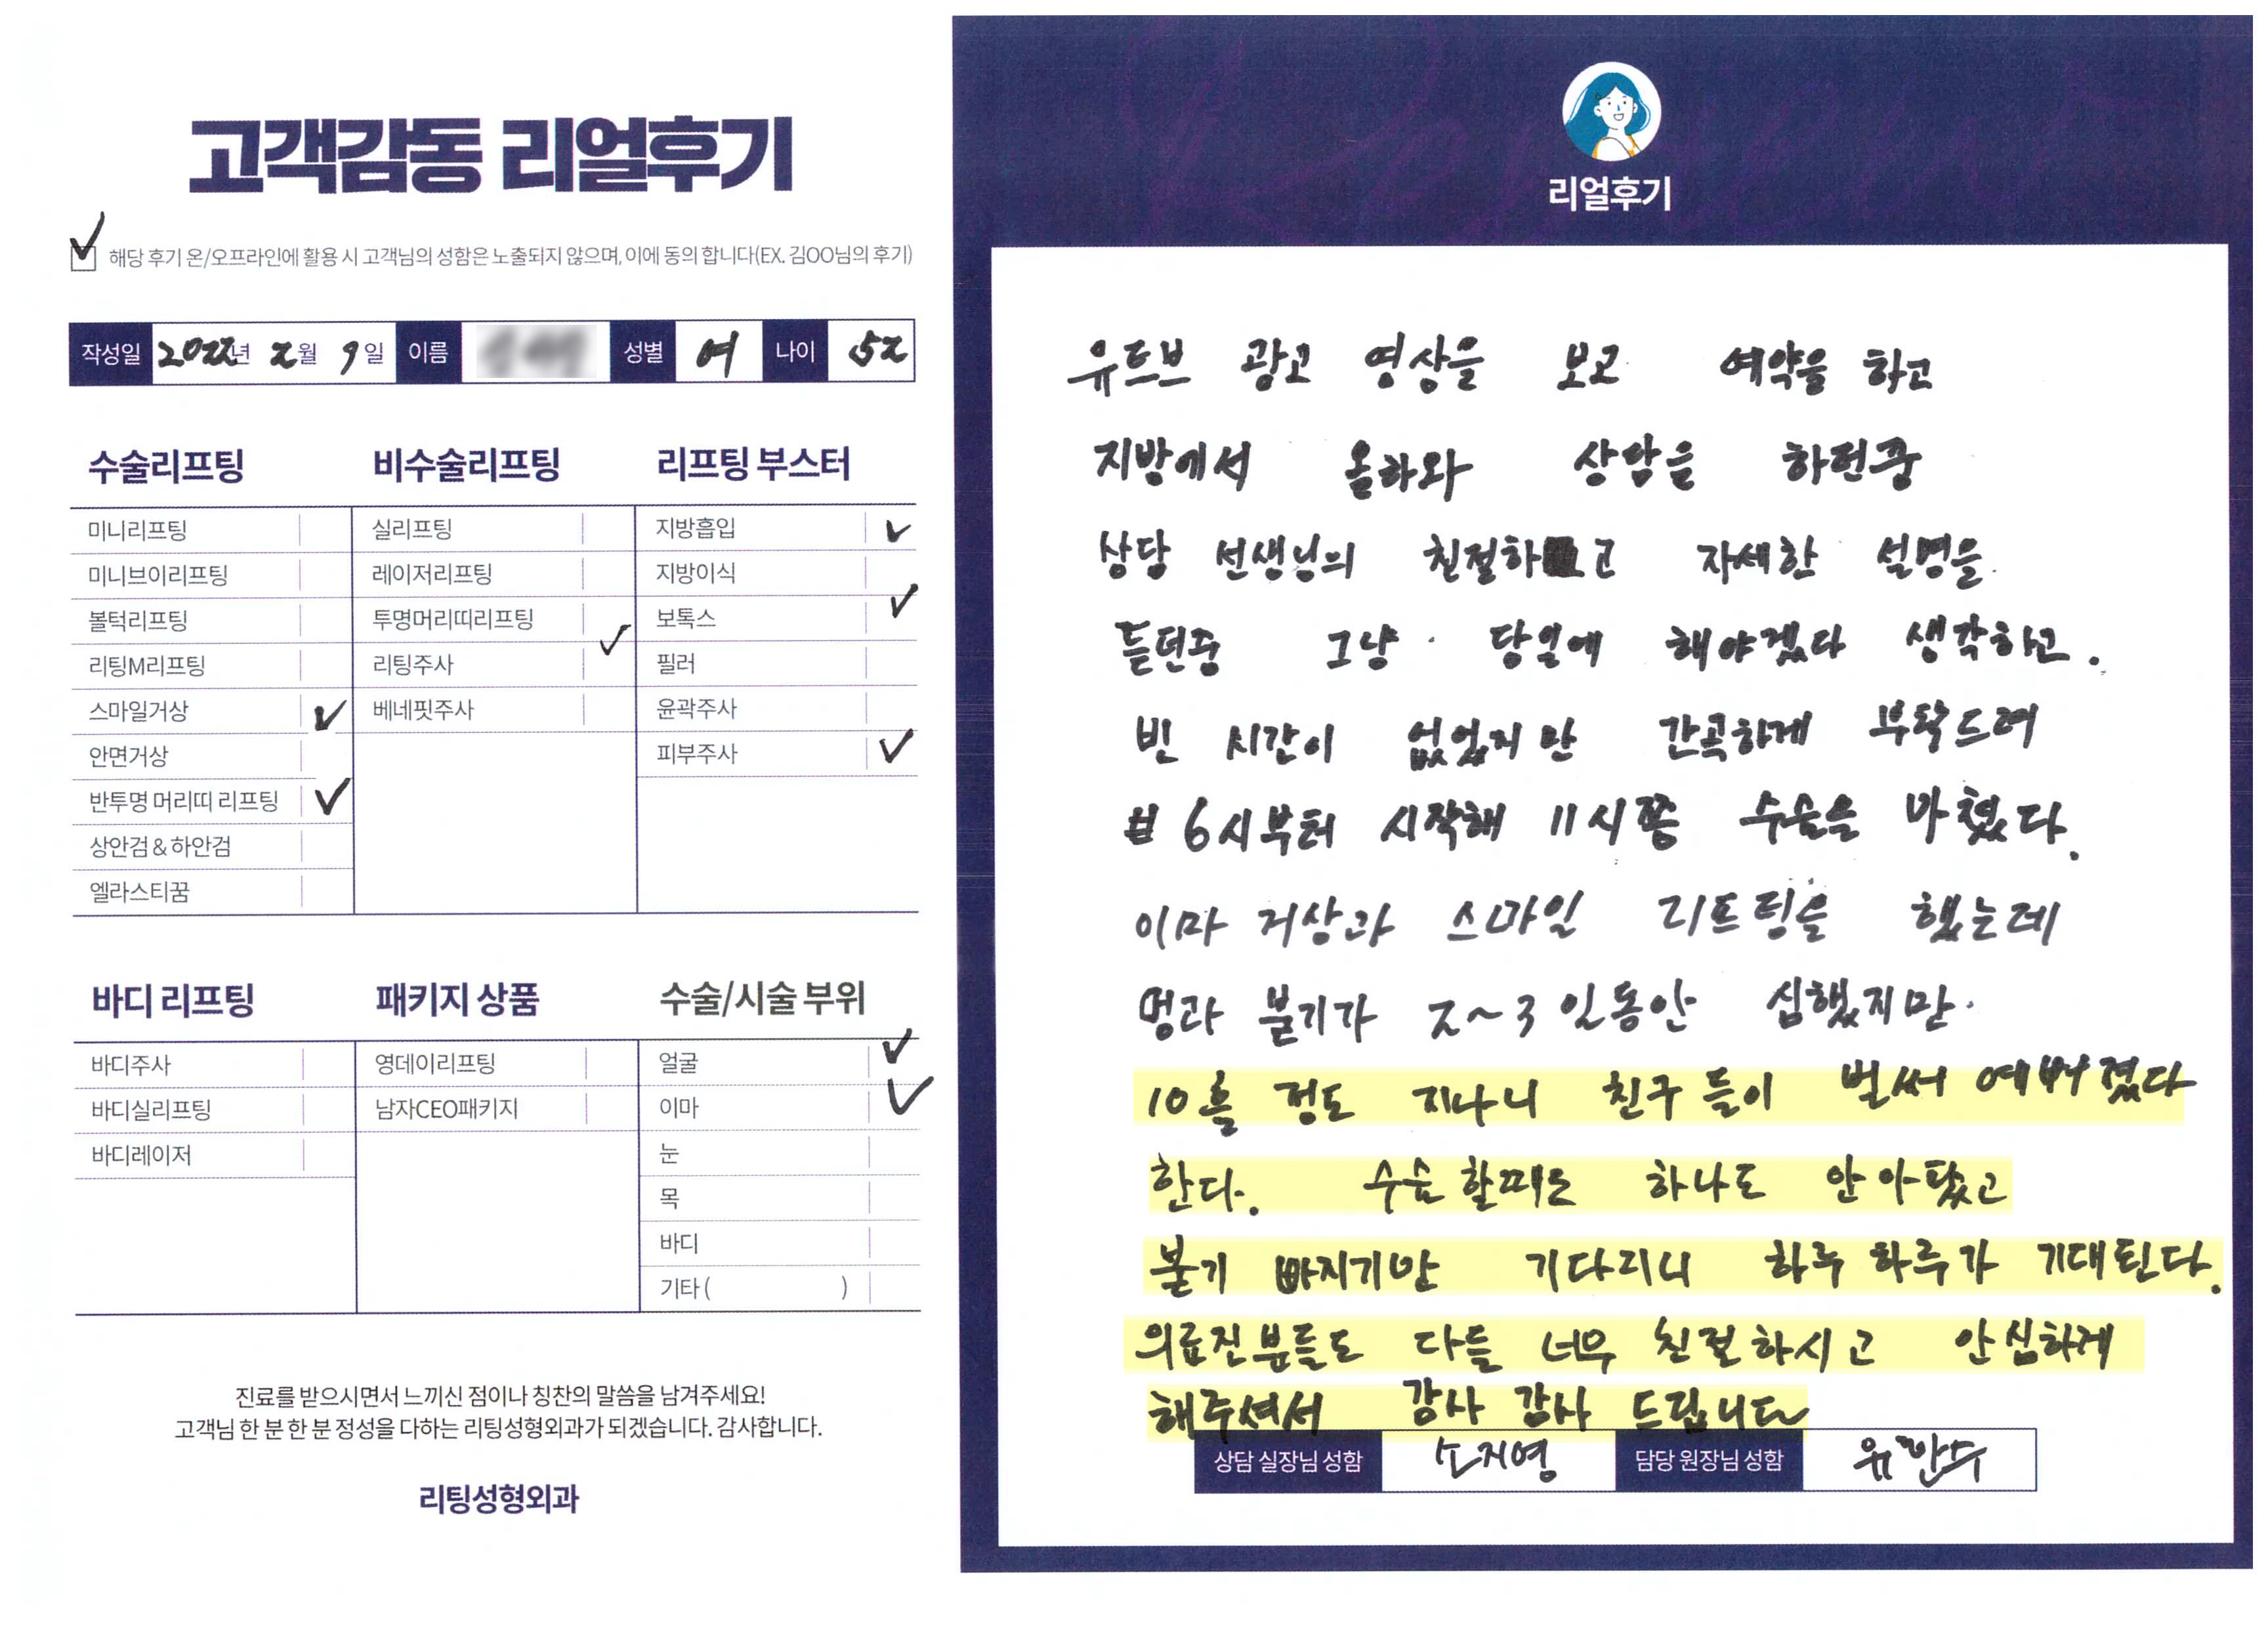 고객감동 리얼후기
해당 후기 온/오프라인에 활용 시 고객님의 성함은 노출되지 않으며, 이에 동의 합니다(EX. 김OO님의 후기)
작성일 2022년 2월 9일 이름 성별 여 나이 52
수술리프팅
미니리프팅
미니브이리프팅
볼턱리프팅
리팅M리프팅
스마일거상 ✓
안면거상
반투명 머리띠 리프팅 ✓
상안검 & 하안검
엘라스티꿈
비수술리프팅
실리프팅
레이저리프팅
투명머리띠리프팅 ✓
리팅주사
베네핏주사
리프팅 부스터
지방흡입 ✓
지방이식
보톡스 ✓
필러
윤곽주사
피부주사 ✓
바디 리프팅
바디주사
바디실리프팅
바디레이저
패키지 상품
영데이리프팅
남자CEO패키지
수술/시술 부위
얼굴 ✓
이마 ✓
눈
목
바디
기타 ( )
진료를 받으시면서 느끼신 점이나 칭찬의 말씀을 남겨주세요!
고객님 한 분 한 분 정성을 다하는 리팅성형외과가 되겠습니다. 감사합니다.
리팅성형외과
리얼후기
유튜브 광고 영상을 보고 예약을 하고
지방에서 올라와 상담을 하던중
상담 선생님의 친절하고 자세한 설명을
듣던중 그냥 당일에 해야겠다 생각하고.
빈 시간이 없었지만 간곡하게 부탁드려
6시부터 시작해 11시쯤 수술을 마쳤다.
이마 거상과 스마일 리프팅을 했는데
멍과 붓기가 2~3일동안 심했지만.
10흘 정도 지나니 친구들이 벌써 예뻐졌다
한다. 수술 할때도 하나도 안 아팠고
붇기 빠지기만 기다리니 하루 하루가 기대된다.
의료진분들도 다들 너무 친절하시고 안심하게
해주셔서 감사 감사 드립니다
상담 실장님 성함 소지영 담당 원장님 성함 유만수